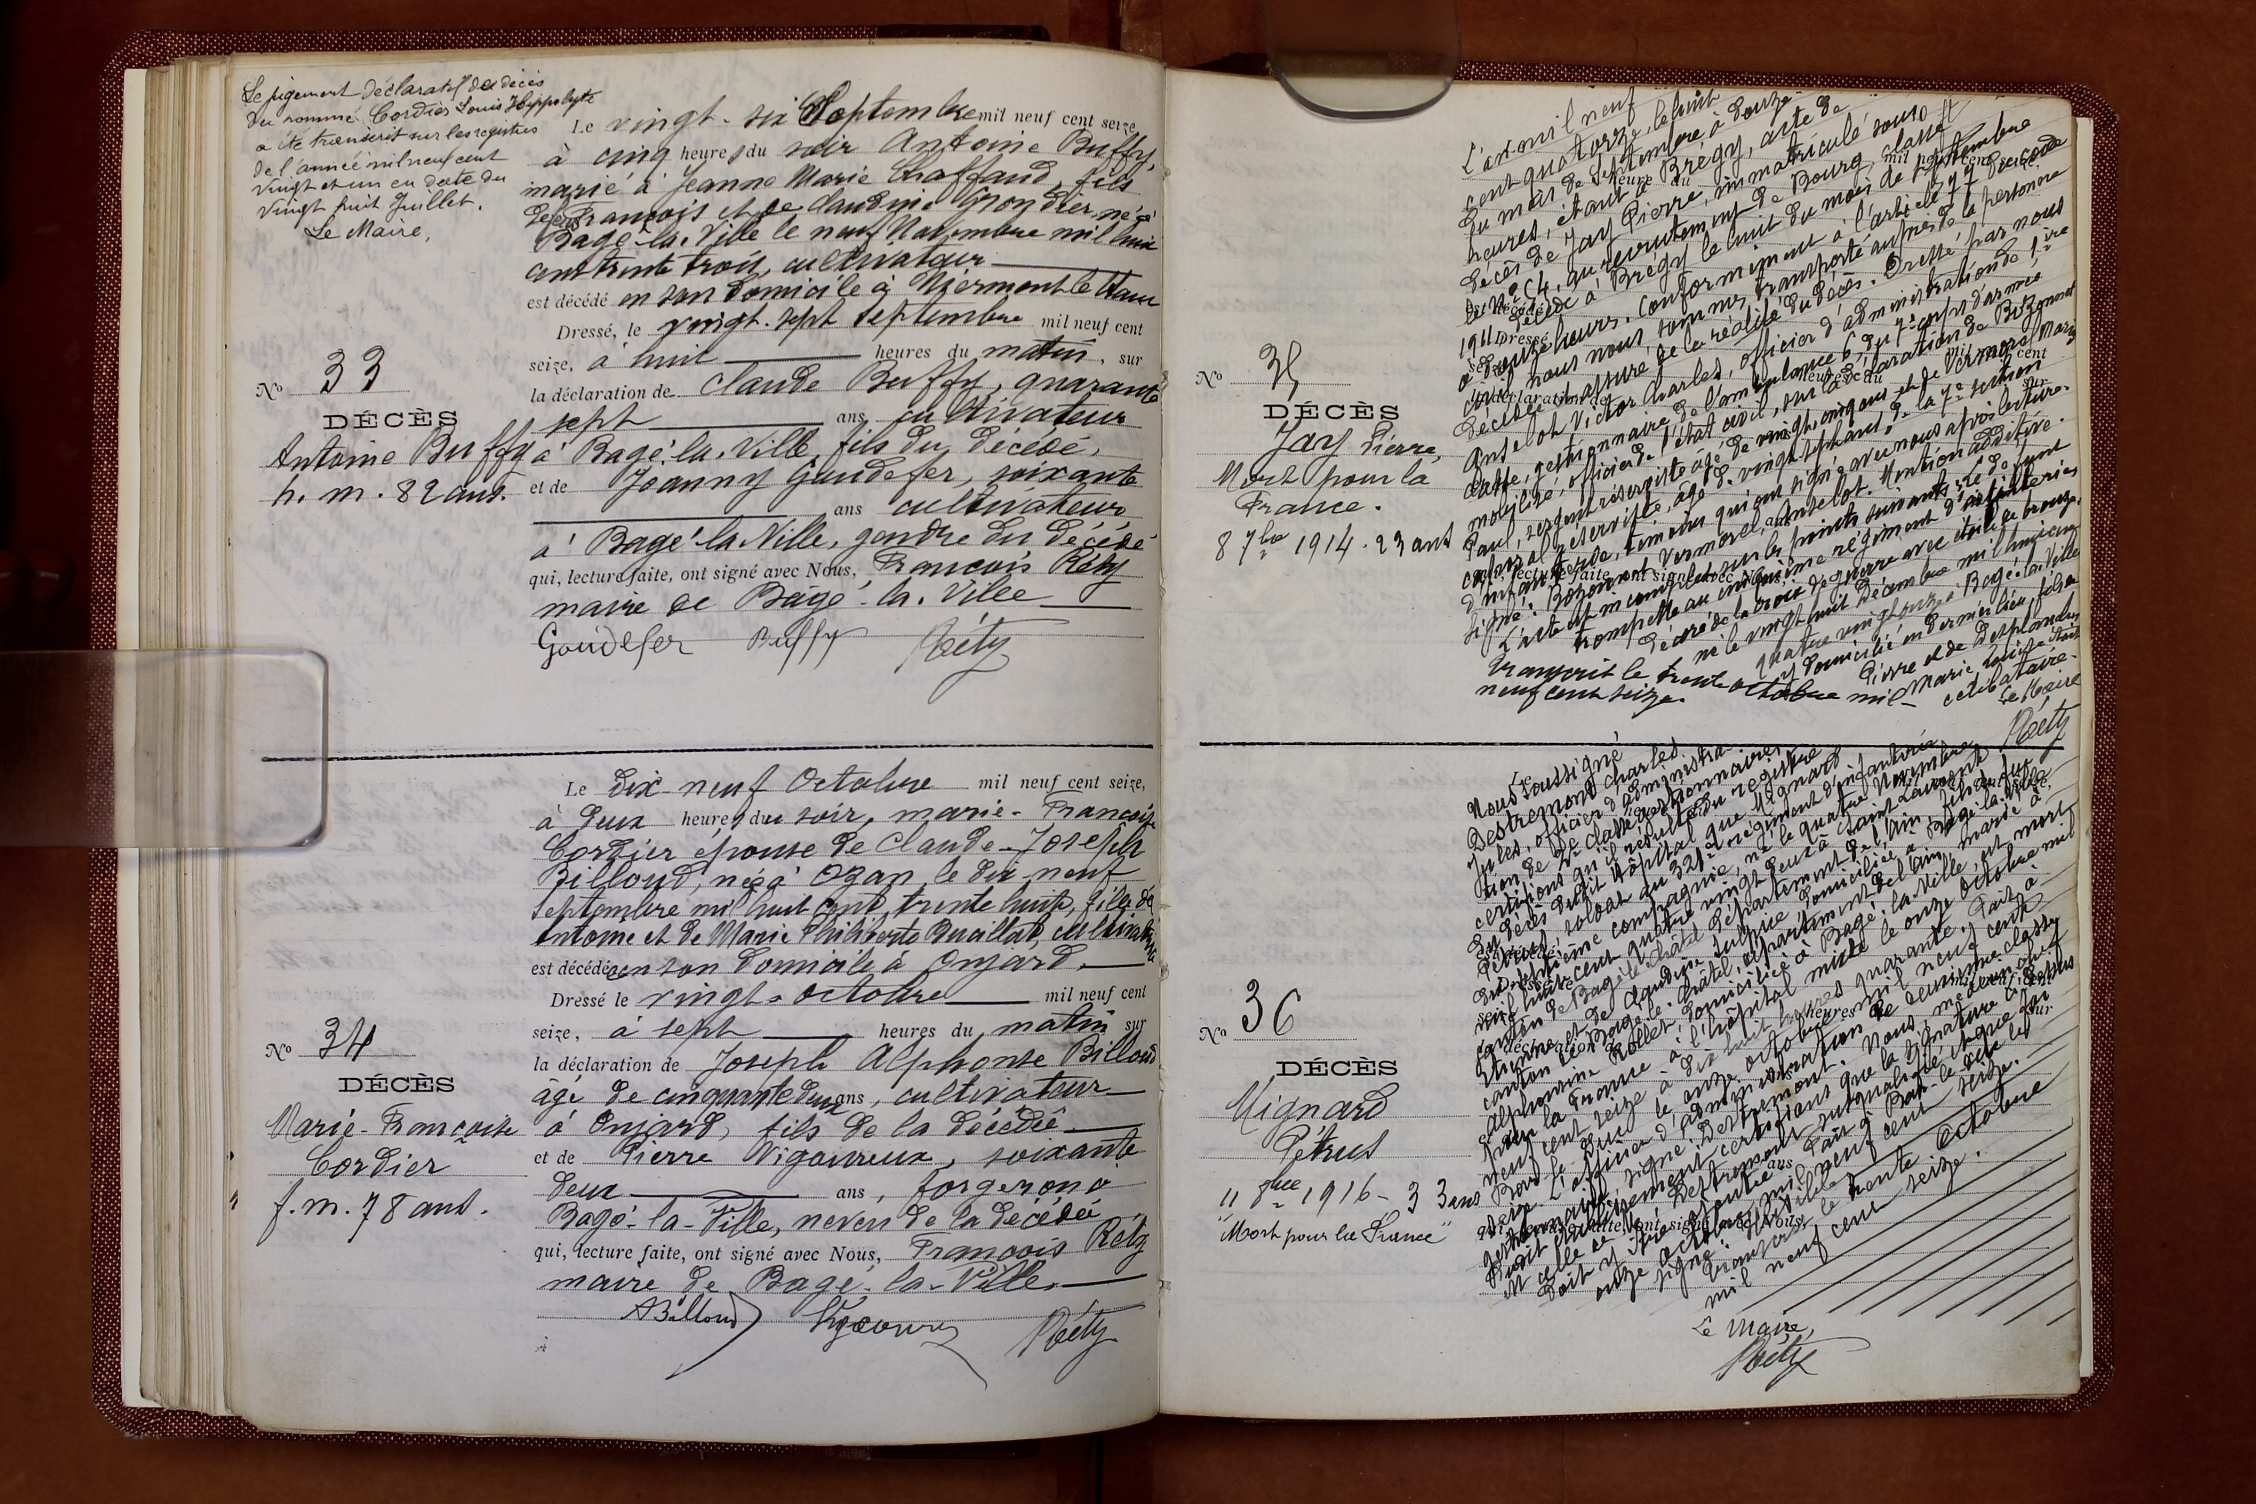 Le jugement déclaratif du décès
du nommé Cordier Louis Hippolyte
a été transcrit sur les registres
de l'année mil neuf cent
vingt et un en date du
vingt huit Juillet.
Le Maire,
Le vingt-six Septembre mil neuf cent seize,
à cinq heures du soir Antoine Buffy,
marié à Jeanne Marie Chaffaud, fils
de François et de Claudine Grondier né à
Bagé-la-Ville le neuf Novembre mil huit
cent trente trois, cultivateur
est décédé en son domicile à Niermont le Haut
Dressé, le vingt-sept septembre mil neuf cent
seize, à huit heures du matin, sur
la déclaration de Claude Buffy, quarante
sept ans cultivateur
à Bagé-la-Ville, fils du décédé,
et de Joanny Goudefer, soixante
ans cultivateur
à Bagé-la-Ville, gendre du décédé
qui, lecture faite, ont signé avec Nous, François Réty
maire de Bagé-la-Ville
Goudefer Buffy Réty
No 33
DÉCÈS
Antoine Buffy
h. m. 82 ans.
Le dix-neuf Octobre mil neuf cent seize,
à deux heures du soir, Marie-Françoise
Cordier épouse de Claude-Joseph
Billoud, née à Ozan le dix-neuf
septembre mil huit cent trente huit, fille de
Antoine et de Marie Philiberte Bucillat, cultivatrice
est décédée en son domicile à Onjard,
Dressé le vingt-octobre mil neuf cent
seize, à sept heures du matin sur
la déclaration de Joseph Alphonse Billoud
âgé de cinquante deux ans, cultivateur
à Onjard, fils de la décédée
et de Pierre Vigoureux, soixante
deux ans, forgeron à
Bagé-la-Ville, neveu de la décédée
qui, lecture faite, ont signé avec Nous, François Réty
maire de Bagé-la-Ville.
ABilloud Vigoureux Réty
No 34
DÉCÈS
Marie-Françoise
Cordier
f. m. 78 ans.
No 35
DÉCÈS
Jay Pierre,
Mort pour la
France.
8 7bre 1914. 23 ans
L'an mil neuf
cent quatorze, le huit
du mois de Septembre à douze
heures, étant à Brégy, acte de
décès de Jay Pierre, immatriculé sous
au recrutement de Bourg, classe
1911 décédé à Brégy le huit du mois de septembre
à douze heures. Conformément à l'article 77 du code
civil nous nous sommes transporté auprès de la personne
décédée et assuré de la réalité du décès. Dressé par nous
Anselot Victor Charles, officier d'administration de 1ère
classe, gestionnaire de l'ambulance 6, du 7e corps d'armée
mobilisé, officier de l'état civil, sur la déclaration de Bozonnet
Paul, sergent réserviste âgé de vingt cinq ans et de Vermorel Marius
caporal réserviste, âgé de vingt sept ans, de la 7e section
d'infirmiers, témoins qui ont signé avec nous après lecture.
Signé: Bozonnet, Vermorel, Anselot. Mention additive.
L'acte est incomplet sur les points suivants: Le défunt
trompette au cinquième régiment d'artilleries
décoré de la croix de guerre avec étoile de bronze,
né le vingt huit Décembre mil huit cent
quatre vingt onze à Bagé-la-Ville
y domicilié en dernier lieu, fils de
Pierre et de Desplanches
Marie Louise était
célibataire.
Transcrit le trente octobre mil
neuf cent seize.
Le Maire
Réty
No 36
DÉCÈS
Mignard
Pétrus
11 8bre 1916 - 33 ans
"Mort pour la France"
Nous soussigné
Destremont Charles
Jules, officier d'administra-
tion de 2e classe gestionnaire
certifions qu'il résulte du registre
du décès dudit hôpital que Mignard
Pétrus, soldat au 321e régiment d'infanterie
dix septième compagnie, né le quatre Novembre
mil huit cent quatre vingt deux à Saint Laurent
canton de Bagé le Châtel département de l'Ain, fils de feu
Etienne et de Claudine Sulpice domiciliée à Bagé-la-Ville
canton de Bagé-le-Châtel, département de l'Ain, marié à
Alphonsine Rollet domiciliée à Bagé-la-Ville, est mort
pour la France à l'hôpital mixte le onze Octobre mil
neuf cent seize à dix huit heures quarante. Fait à
Bar-le-Duc le onze octobre mil neuf cent
seize. L'officier d'administration de deuxième classe
gestionnaire, signé: Destremont. Nous, médecin chef
dudit certifions que la signature ci-dessus
est celle de Mr Destremont susqualifié et que foi
doit y être ajoutée. Fait à Bar-le-Duc le
onze octobre mil neuf cent seize.
Transcrit le trente octobre
mil neuf cent seize.
Le Maire,
Réty